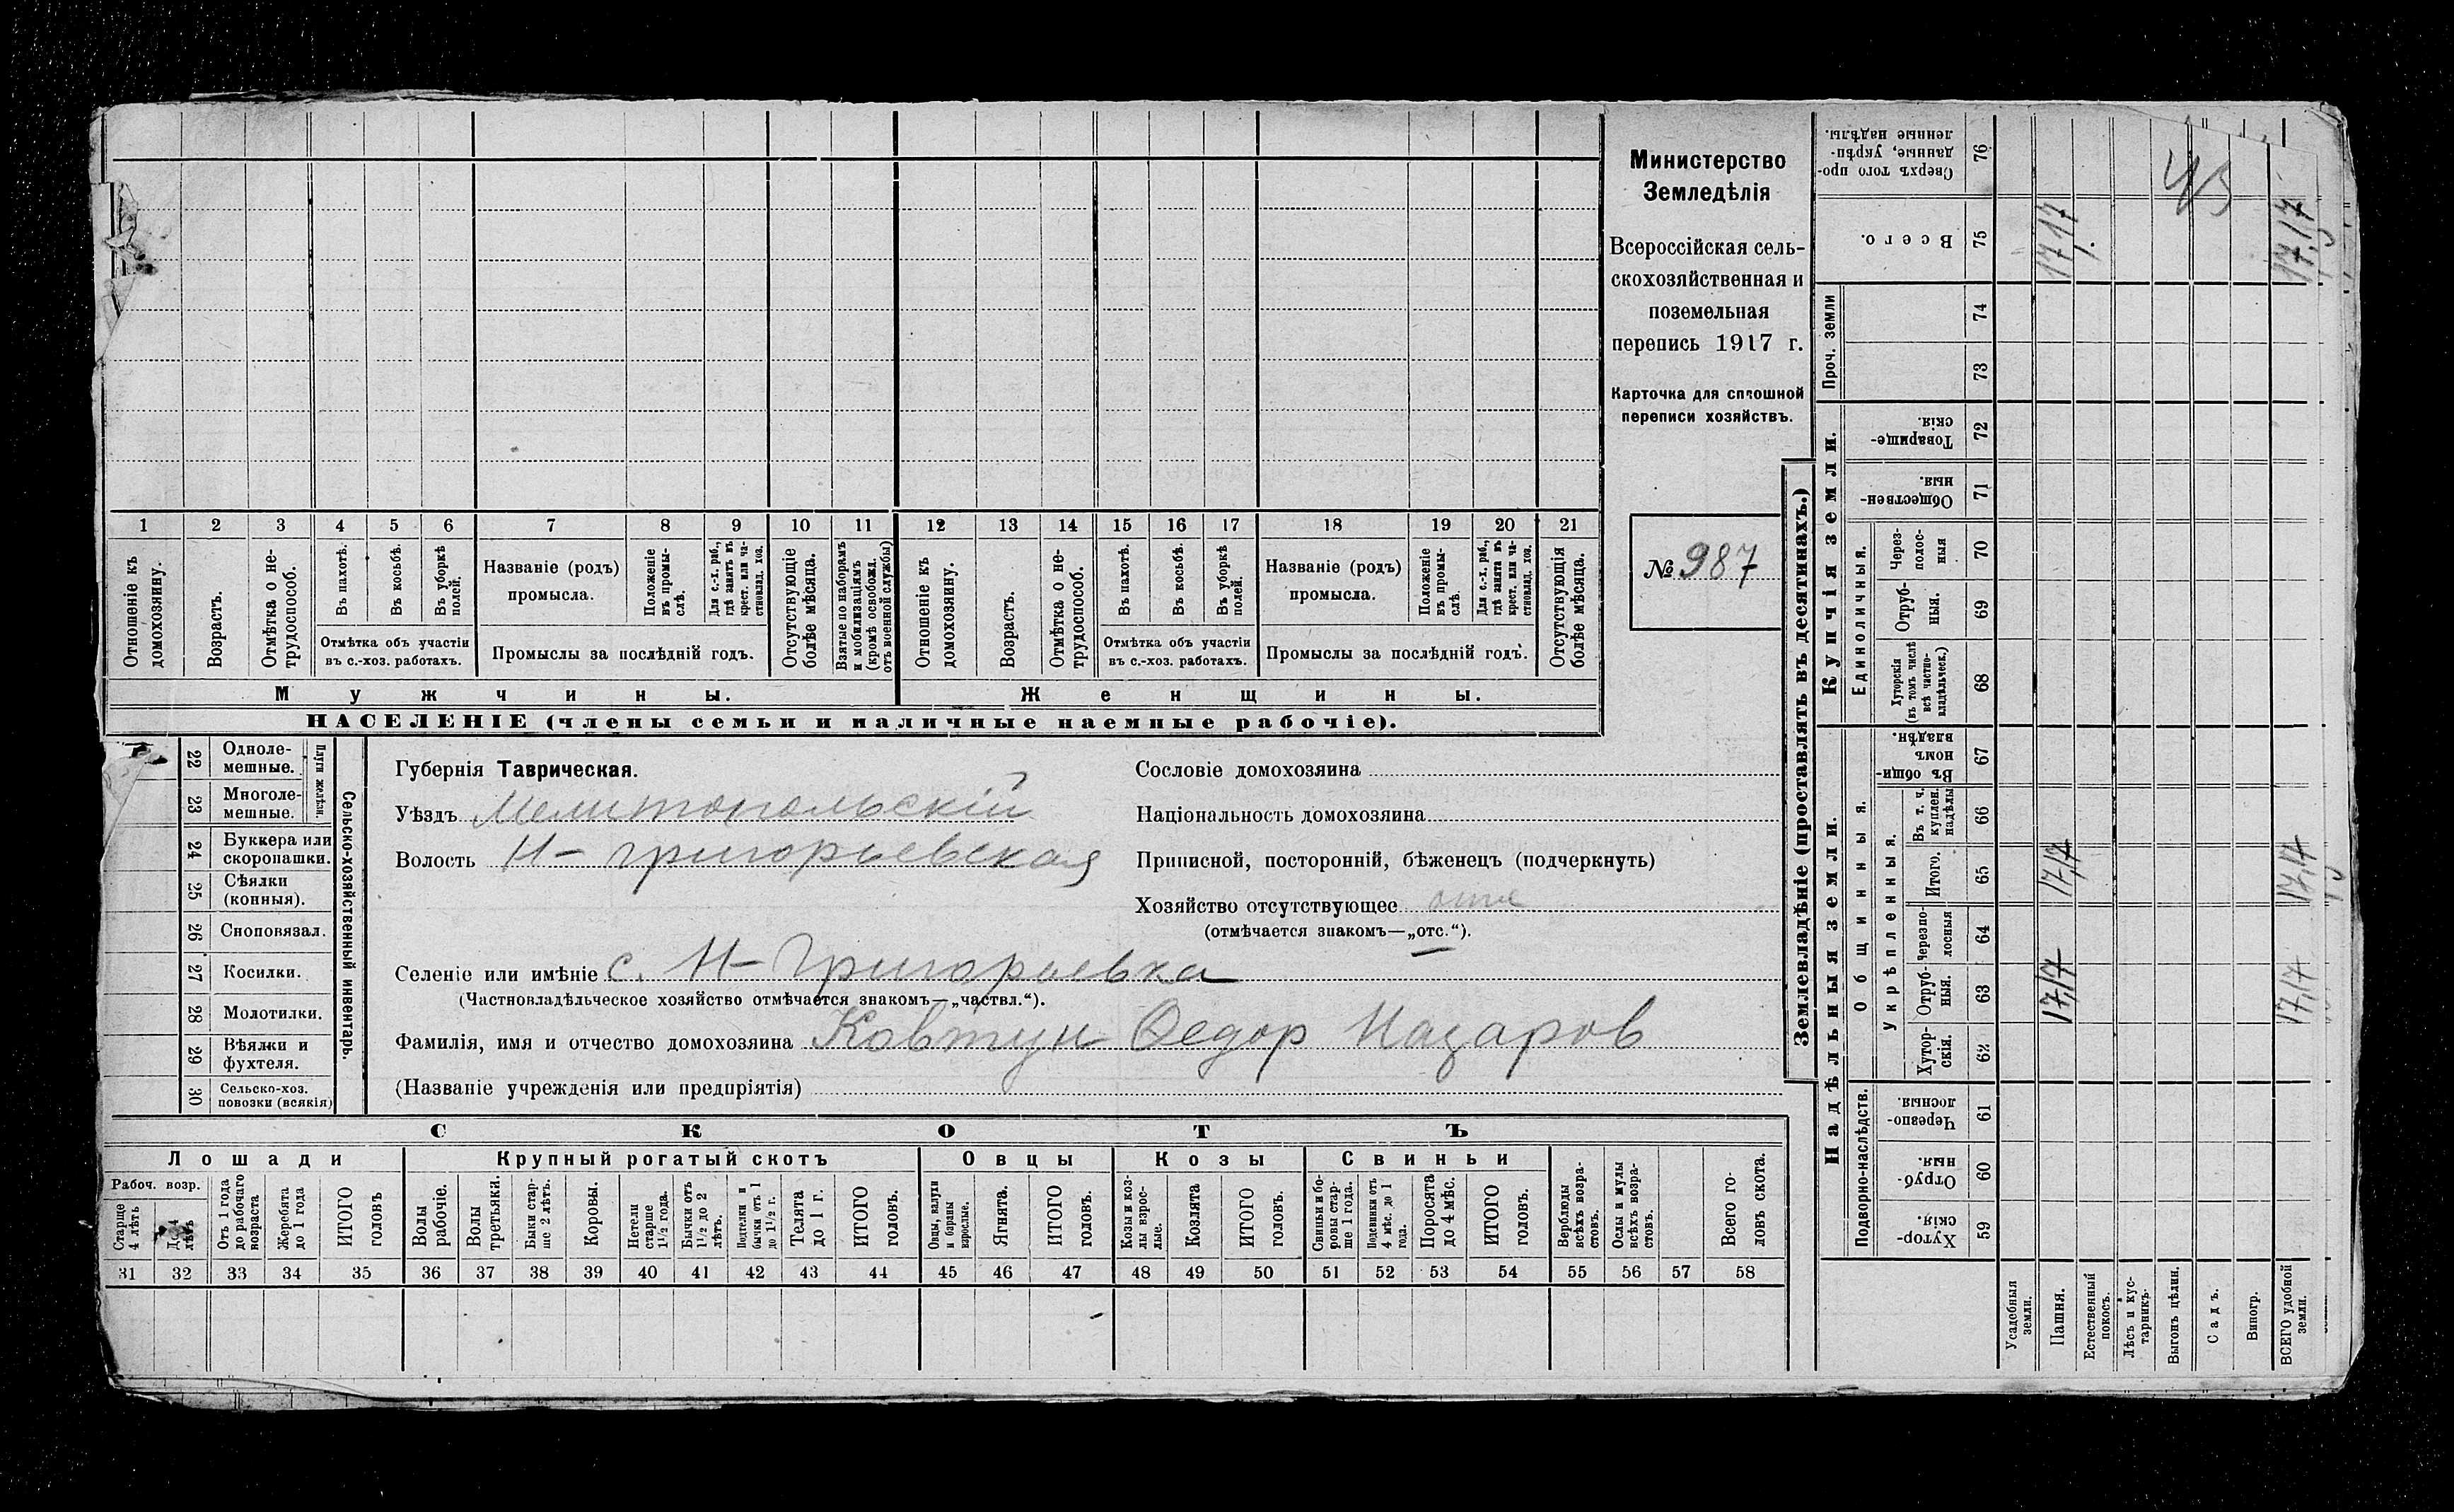 1 2 3 4 5 6 7 8 9 10 11 12 13 14 15 16 17 18 19 20 21
Отношеніе къ домохозяину.
Возрастъ.
Отмѣтка о нетрудоспособ.
Въ пахотѣ.
Въ косьбѣ.
Въ уборкѣ полей.
Отмѣтка объ участіи
въ с.-хоз. работахъ.
Названіе (родъ)
промысла.
Положеніе въ промыслѣ.
Для с.-х. раб., гдѣ занятъ въ крест. или частновлад. хоз.
Промыслы за послѣдній годъ.
Отсутствующіе болѣе мѣсяца.
Взятые по наборамъ и мобилизаціямъ (кромѣ освобожд. отъ военной службы)
Отношеніе къ домохозяину.
Возрастъ.
Отмѣтка о нетрудоспособ.
Въ пахотѣ.
Въ косьбѣ.
Въ уборкѣ полей.
Отмѣтка объ участіи
въ с.-хоз. работахъ.
Названіе (родъ)
промысла.
Положеніе въ промыслѣ.
Для с.-х. раб., гдѣ занята въ крест. или частновлад. хоз.
Промыслы за послѣдній годъ.
Отсутствующія болѣе мѣсяца.
Мужчины.
Женщины.
НАСЕЛЕНІЕ (члены семьи и наличные наемные рабочіе).
Министерство
Земледѣлія
Всероссійская сель-
скохозяйственная и
поземельная
перепись 1917 г.
Карточка для сплошной
переписи хозяйствъ.
№ 987
22 Одноле-
мешные.
23 Многоле-
мешные.
Плуги желѣзн.
24 Буккера или
скоропашки.
25 Сѣялки
(конныя).
26 Сноповязал.
27 Косилки.
28 Молотилки.
29 Вѣялки и
фухтеля.
30 Сельско-хоз.
повозки (всякія)
Сельско-хозяйственный инвентарь.
Губернія Таврическая.
Уѣздъ Мелитопольскій
Волость Н-григорьевская
Селеніе или имѣніе с. Н-Григорьевка
(Частновладѣльческое хозяйство отмѣчается знакомъ—„частвл.“).
Фамилія, имя и отчество домохозяина Ковтун Федор Назаров
(Названіе учрежденія или предпріятія)
Сословіе домохозяина
Національность домохозяина
Приписной, посторонній, бѣженецъ (подчеркнуть)
Хозяйство отсутствующее
(отмѣчается знакомъ—„отс.“).
СКОТЪ
Лошади
Крупный рогатый скотъ
Овцы
Козы
Свиньи
Рабоч. возр.
Старще 4 лѣтъ
До 4 лѣтъ
Отъ 1 года до рабочаго возраста
Жеребята до 1 года
ИТОГО головъ
Волы рабочіе.
Волы третьяки.
Быки старше 2 лѣтъ.
Коровы.
Нетели старше 1½ года.
Бычки отъ 1½ до 2 лѣтъ.
Подтелки и бычки отъ 1 до 1½ г.
Телята до 1 г.
ИТОГО головъ.
Овцы, валухи и бараны взрослые.
Ягнята.
ИТОГО головъ.
Козы и козлы взрослые.
Козлята
ИТОГО головъ.
Свиньи и боровы старше 1 года.
Подсвинки отъ 4 мѣс. до 1 года.
Поросята до 4 мѣс.
ИТОГО головъ.
Верблюды всѣхъ возрастовъ.
Ослы и мулы всѣхъ возрастовъ.
Всего головъ скота.
31 32 33 34 35 36 37 38 39 40 41 42 43 44 45 46 47 48 49 50 51 52 53 54 55 56 57 58
Землевладѣніе (проставлять въ десятинахъ.)
Сверхъ того проданные, укрѣпленные надѣлы. 76
Всего. 75 17 17 17,17
Проч. земли
74
73
Купчія земли.
Товарищескія. 72
Общественныя. 71
Единоличныя.
Черезполосныя 70
Отрубныя. 69
Хуторскія (въ томъ числѣ всѣ частновладѣльческ.) 68
Надѣльныя земли.
Общинныя.
Въ общинномъ владѣн. 67
Укрѣпленныя.
Въ т. ч. куплен. надѣлы 66
Итого. 65 17,17 17,17
Черезполосныя 64
Отрубныя. 63 17,17 17,17
Хуторскія. 62
Подворно-наслѣдств.
Черезполосныя. 61
Отрубныя. 60
Хуторскія. 59
Усадебныя земли.
Пашня.
Естественный покосъ.
Лѣсъ и кустарникъ.
Выгонъ цѣлин.
Садъ.
Виногр.
ВСЕГО удобной земли.